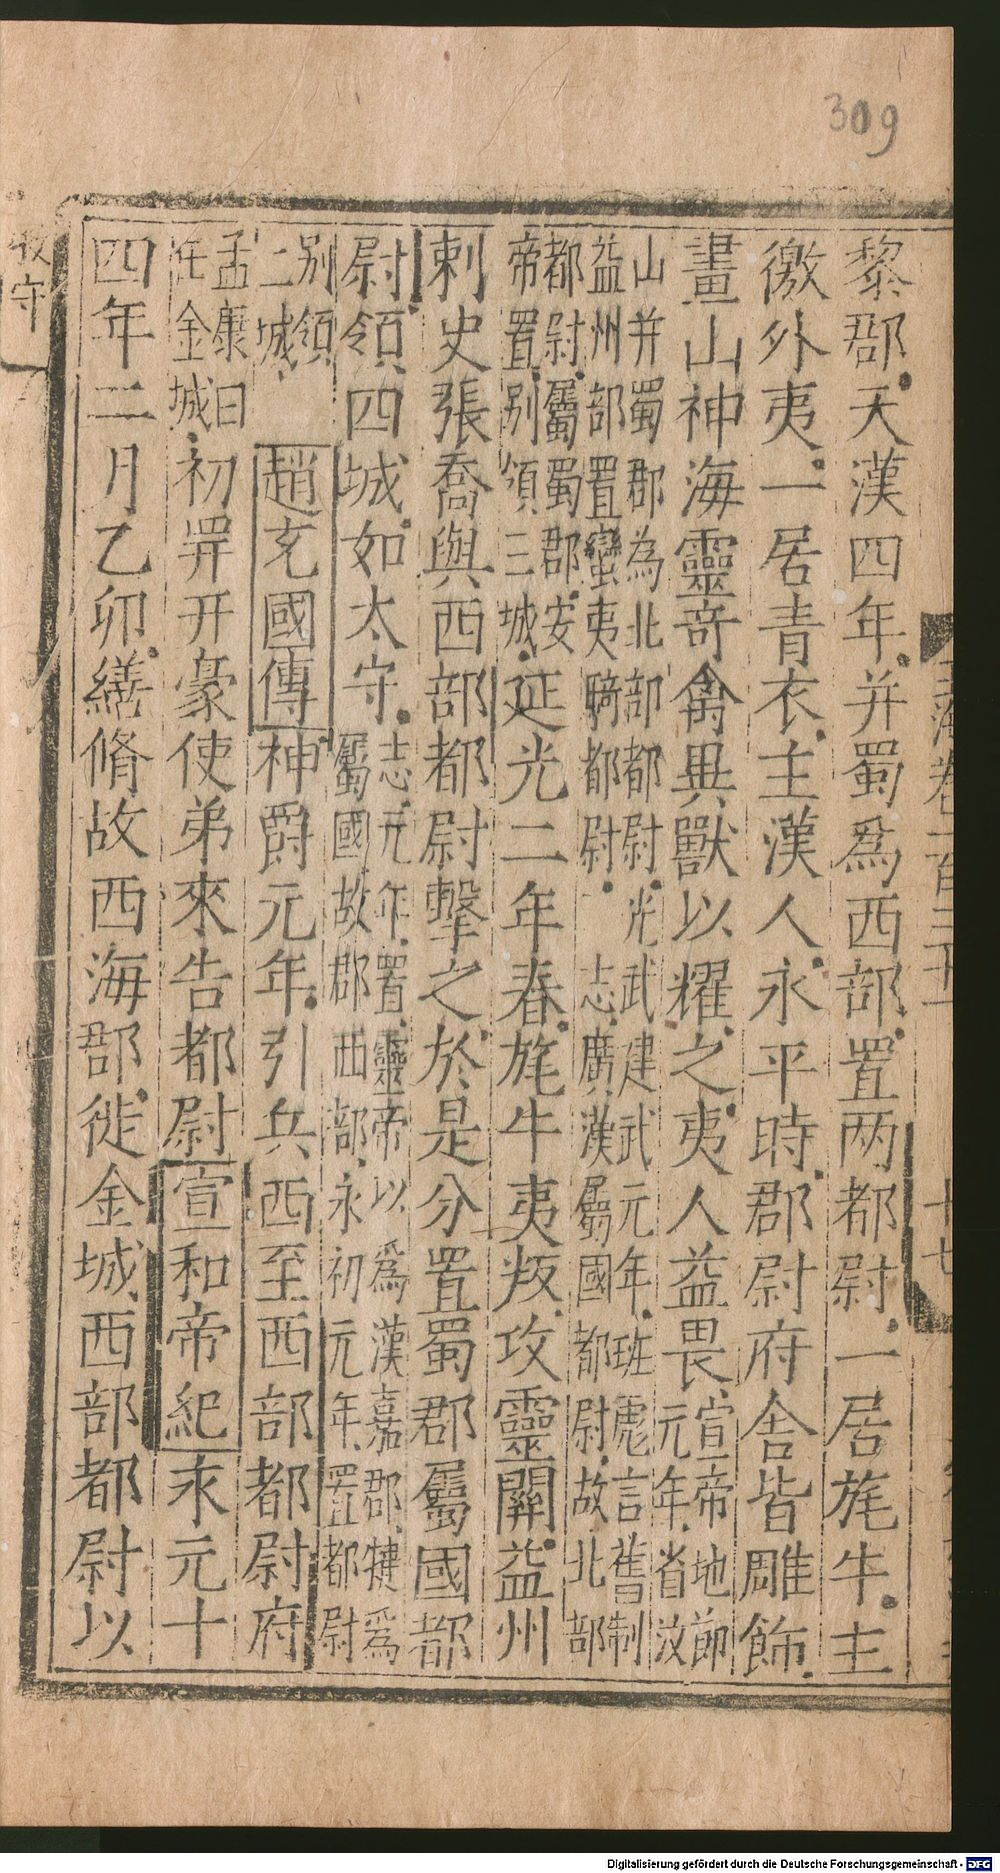 309
黎郡天漢四年并蜀爲西部置两都尉一居旄牛主
徼外夷一居青衣主漢人永平時郡尉府舍皆雕飾
畫山神海靈竒禽異獸以耀之夷人益畏宣帝地節
元年省汶
山并蜀郡為北部都尉光武建武元年班彪言舊制
益州部置蠻夷騎都尉志廣漢屬國都尉故北部
都尉屬蜀郡安
帝置别領三城延光二年春旄牛夷叛攻靈關益州
刺史張喬與西部都尉擊之於是分置蜀郡屬國都
尉領四城如太守志元年置靈帝以爲漢嘉郡犍爲
屬國故郡西部永初元年置都尉
别領
二城趙充國傳神爵元年引兵西至西部都尉府
孟康曰
在金城初罕开豪使弟來告都尉宣和帝紀永元十
四年二月乙卯繕脩故西海郡徙金城西部都尉以
牧守
玉海卷一百三十一
十七
Digitalisierung gefördert durch die Deutsche Forschungsgemeinschaft - DFG